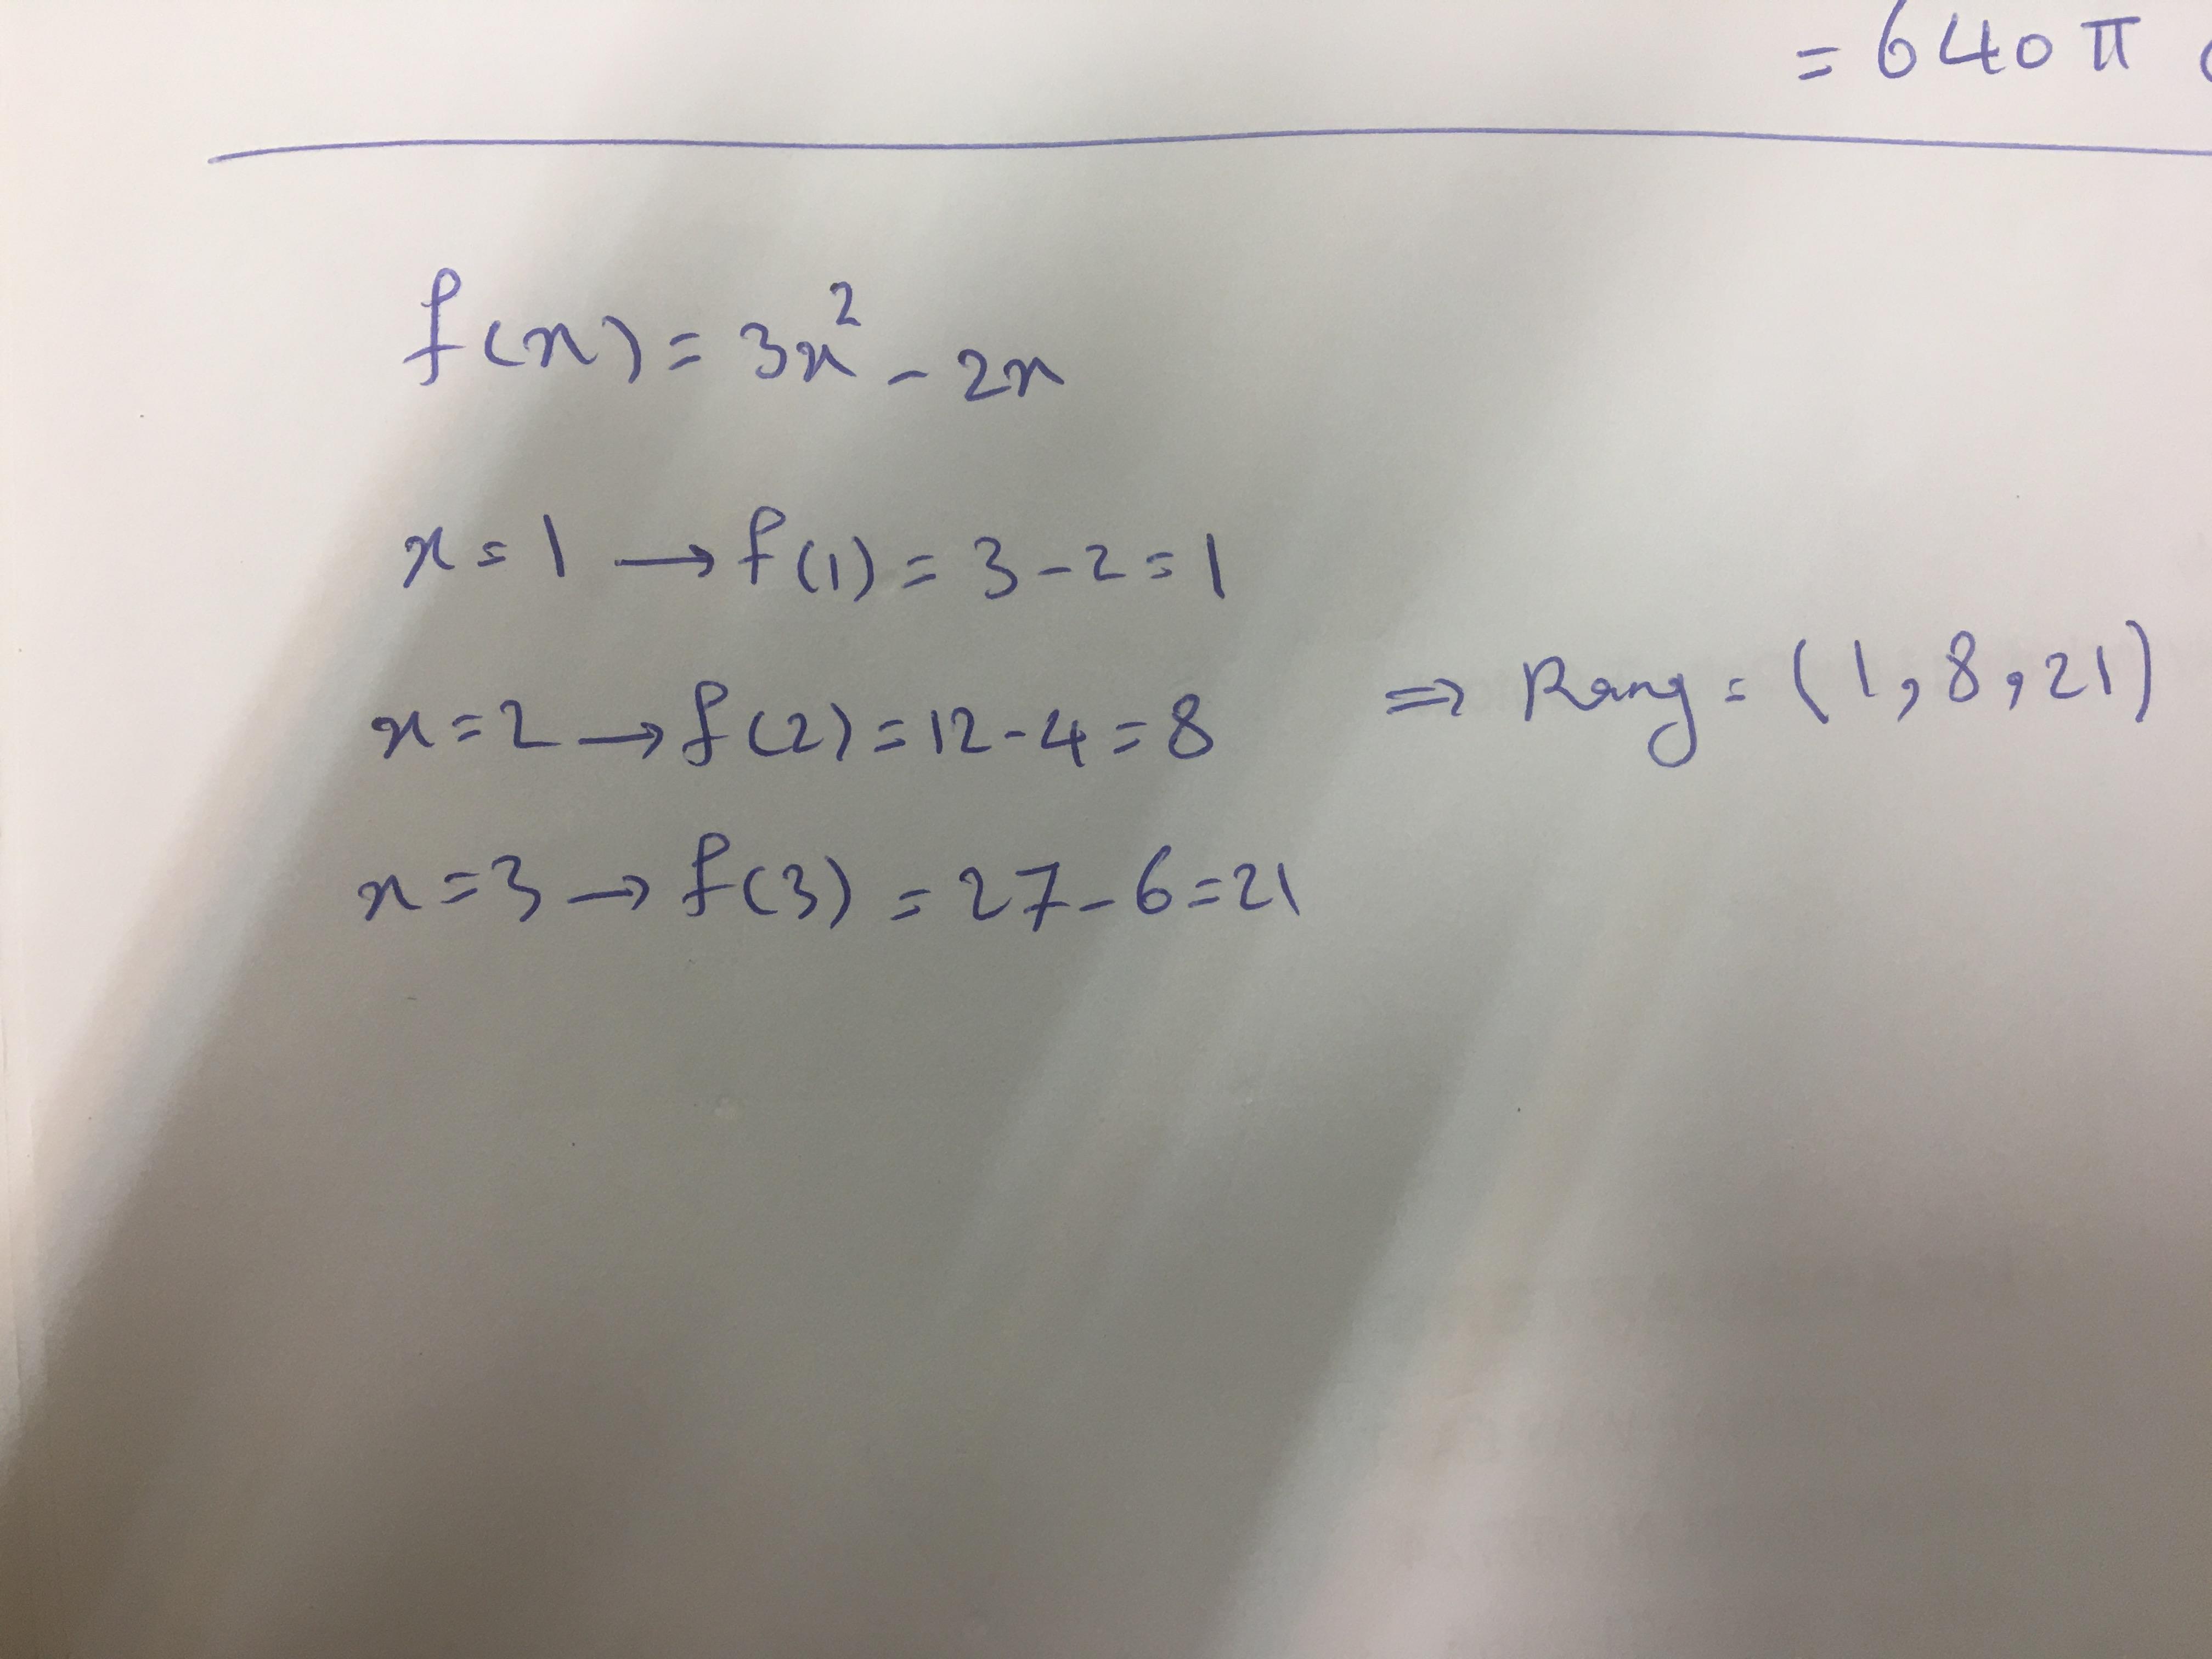 = 640 π
f(x) = 3x² - 2x
x = 1 → f(1) = 3 - 2 = 1
x = 2 → f(2) = 12 - 4 = 8 ⇒ Rang = (1, 8, 21)
x = 3 → f(3) = 27 - 6 = 21